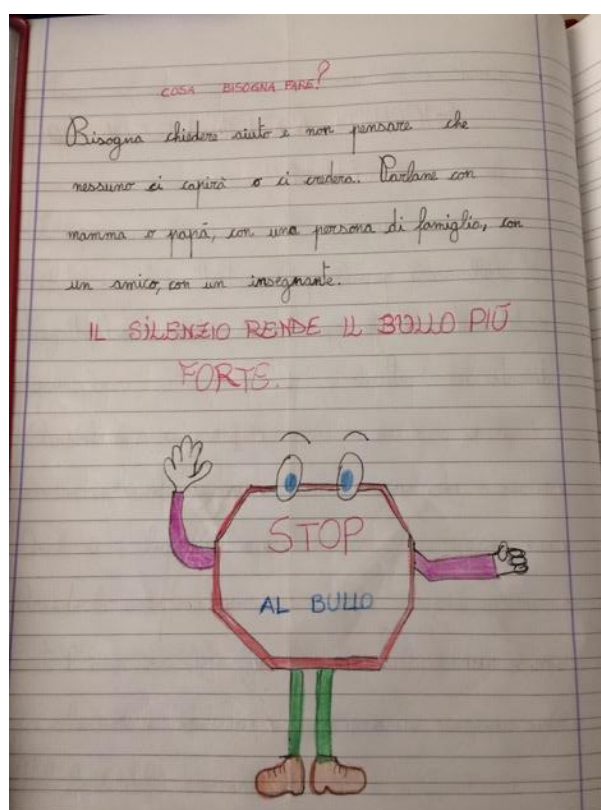 COSA BISOGNA FARE?
Bisogna chiedere aiuto e non pensare che
nessuno ci capirà o ci crederà. Parlane con
mamma o papà, con una persona di famiglia, con
un amico, con un insegnante.
IL SILENZIO RENDE IL BULLO PIÚ
FORTE.
STOP
AL BULLO